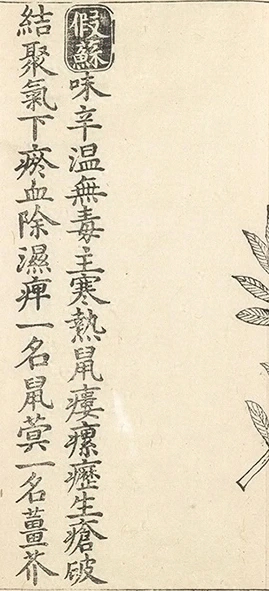 假蘇味辛温無毒主寒熱鼠瘻瘰癧生瘡破
結聚氣下瘀血除濕痺一名鼠蓂一名薑芥